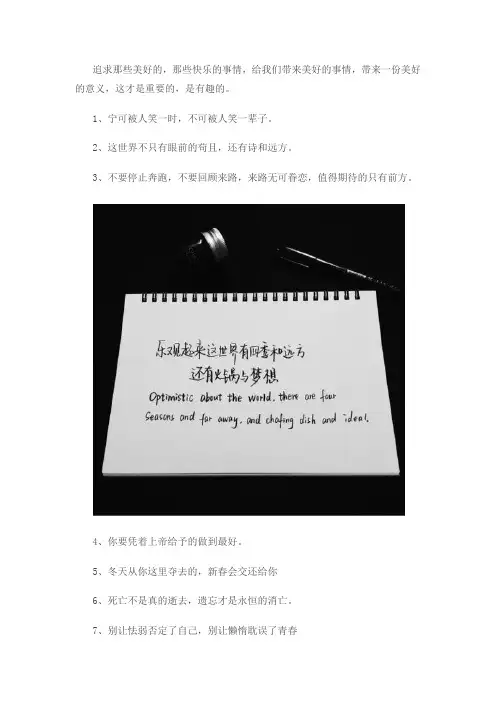 追求那些美好的，那些快乐的事情，给我们带来美好的事情，带来一份美好
的意义，这才是重要的，是有趣的。
1、宁可被人笑一时，不可被人笑一辈子。
2、这世界不只有眼前的苟且，还有诗和远方。
3、不要停止奔跑，不要回顾来路，来路无可眷恋，值得期待的只有前方。
乐观起来这世界有四季和远方
还有火锅与梦想
Optimistic about the world. there are four
Seasons and far away, and chafing dish and ideal.
4、你要凭着上帝给予的做到最好。
5、冬天从你这里夺去的，新春会交还给你
6、死亡不是真的逝去，遗忘才是永恒的消亡。
7、别让怯弱否定了自己，别让懒惰耽误了青春